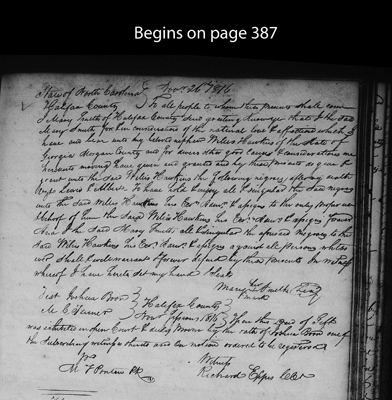 Begins on page 387
State of North Carolina } Nov. 26th 1816
Halifax County } To all people to whom these presents shall come
I Mary Smith of Halifax County Send greeting Know ye that I the said
Mary Smith for the consideration of the natural love & affection which I
have and bear unto my beloved nephew Willis Hawkins of the State of
Georgia Morgan County and for divers other good causes & considerations me
hereunto moving have given and granted and by these presents do give &
grant unto the said Willis Hawkins the following negroes after my death
Lewis & To have hold & enjoy all & singular the said negroes
unto the said Willis Hawkins his Exr. Admr. & assigns to the only proper use &
behoof of him the said Willis Hawkins his Exr. Admr. & assigns forever
And I the said Mary Smith all & singular the aforesaid negroes to the
said Willis Hawkins his Exr. Admr. & assigns against all persons whatso
ever shall & will warrant & forever defend by these presents In witness
whereof I have hereto set my hand & Seal
Mary Smith Seal
mark
Test Joshua
M. E. Turner
Halifax County
Nov. Session 1816 } Then this deed of Gift
was exhibited in open Court & duly proven by the oath of Joshua one of
the subscribing witnesses thereto and on motion ordered to be registered
Witness
Richard Eppes